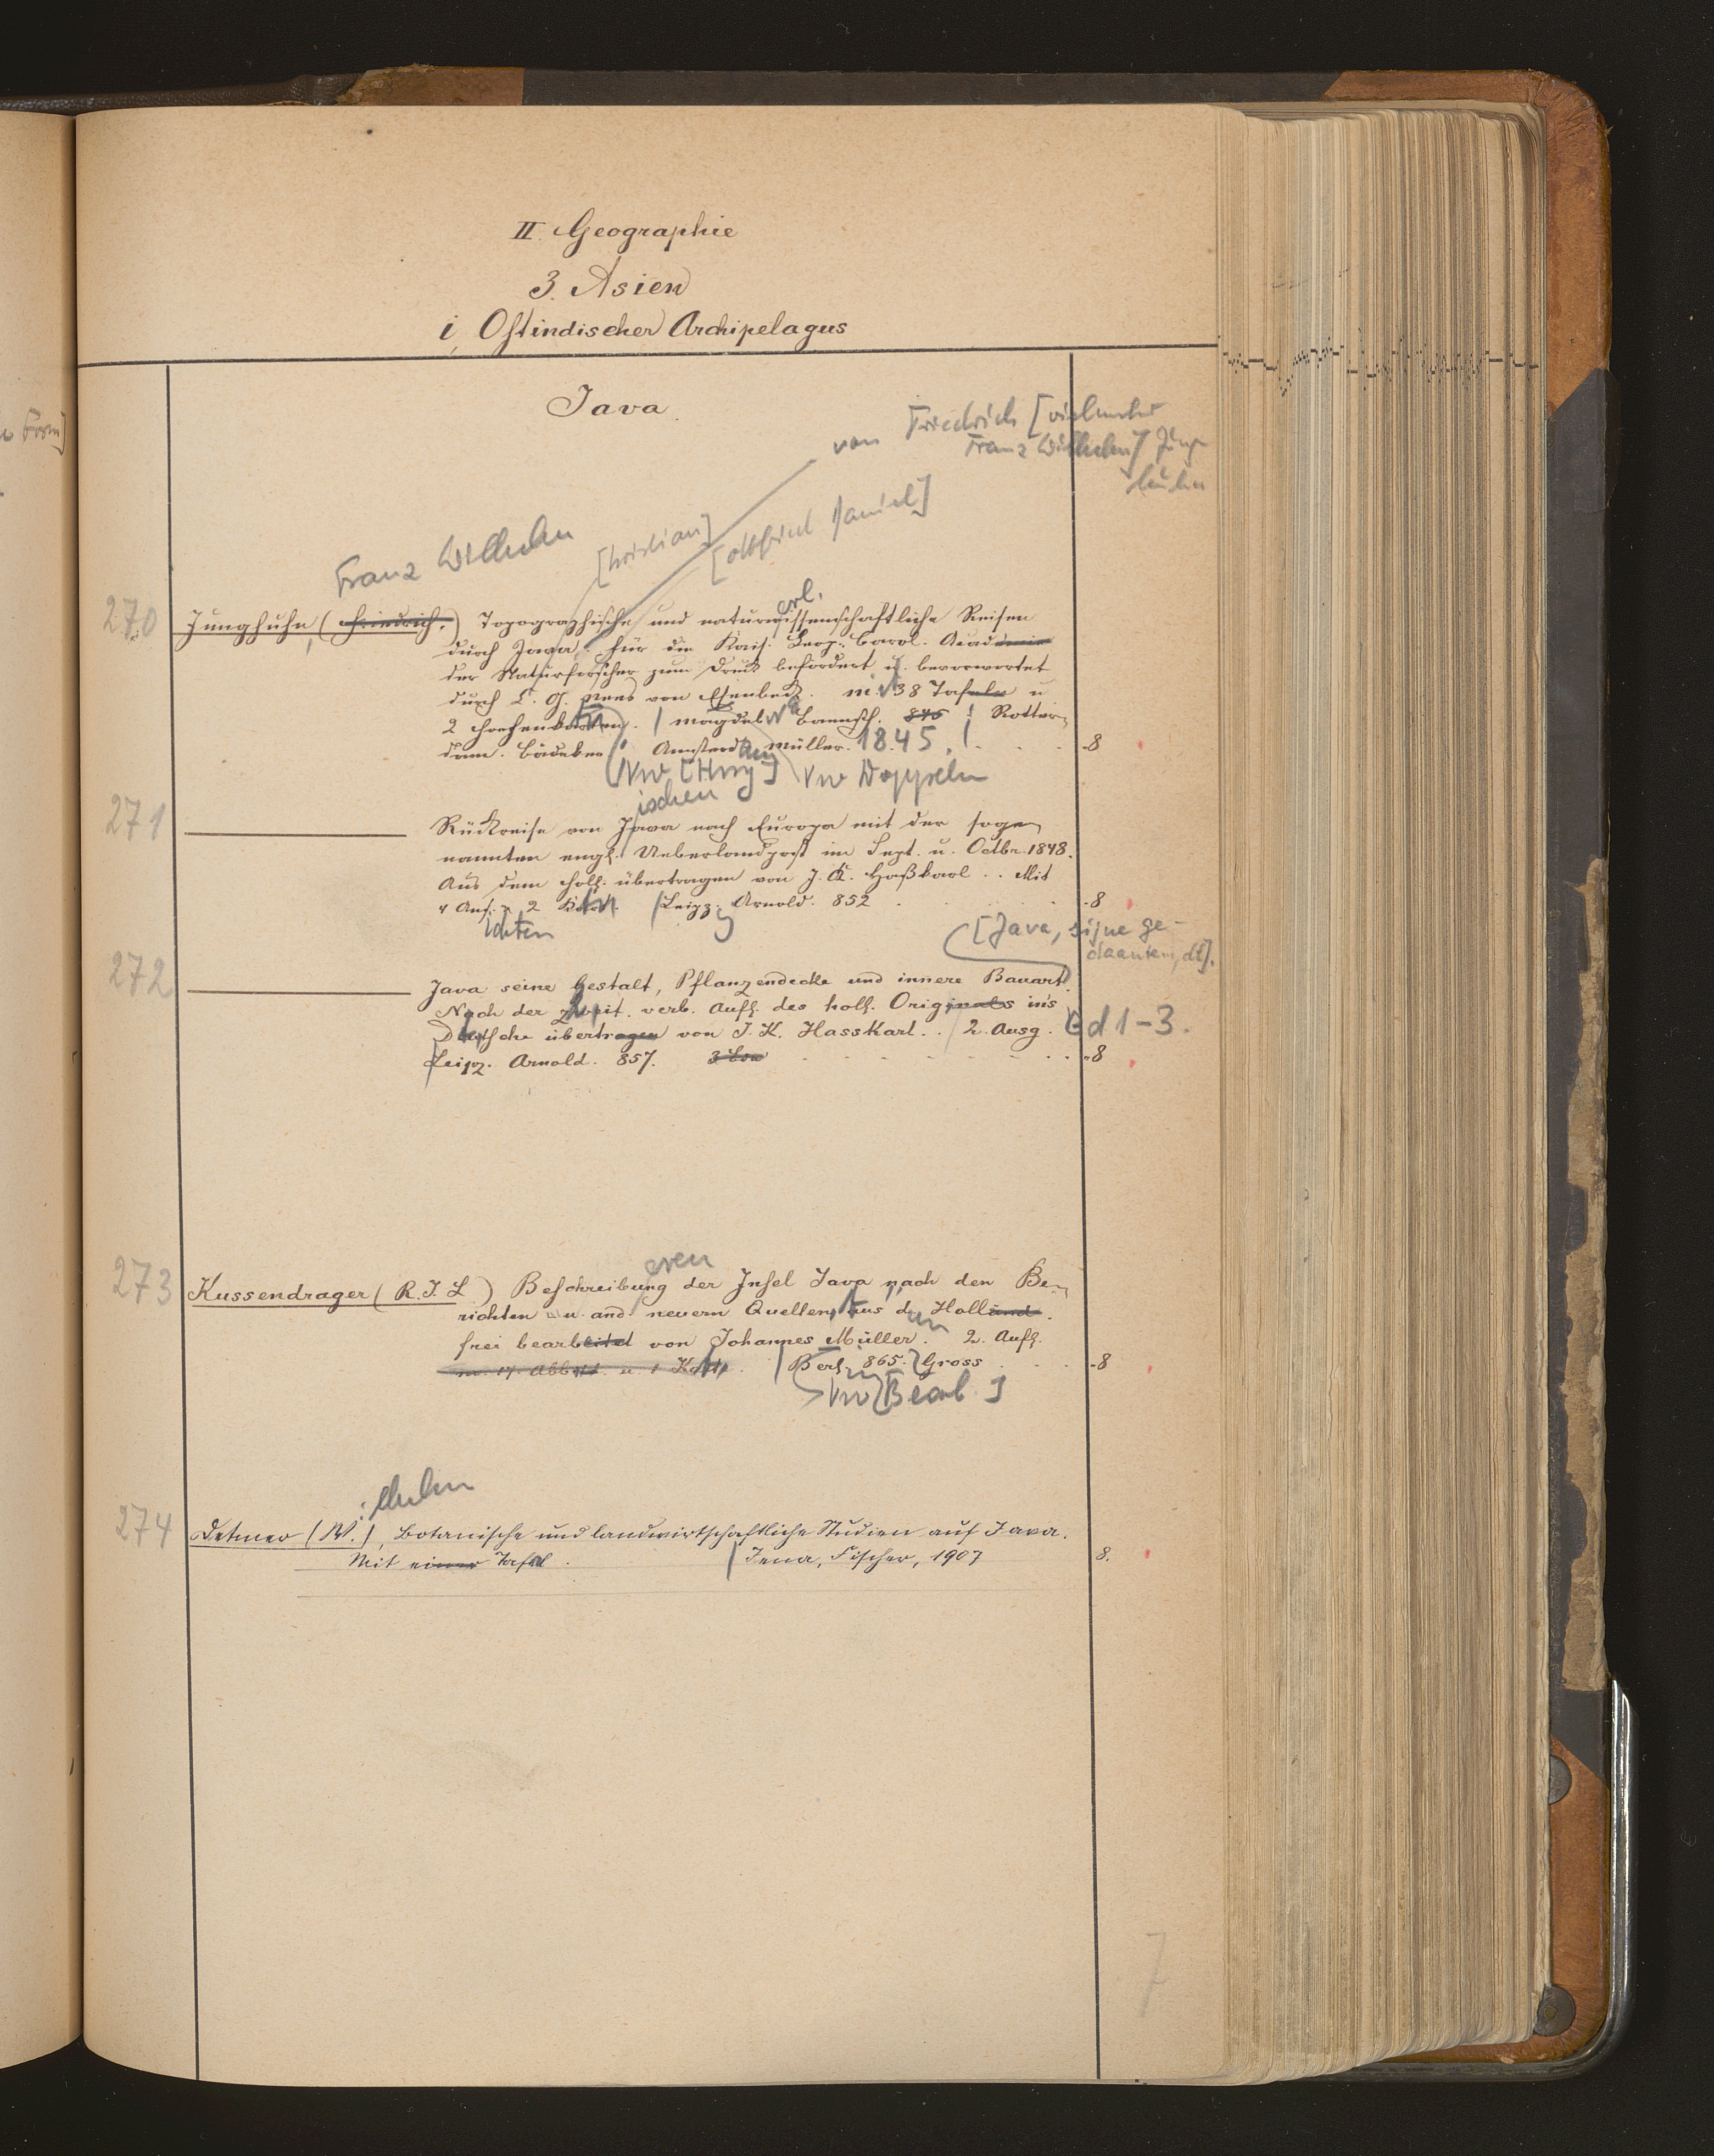 II. Geographie
3. Asien
i, Ostindischer Archipelagus
Java.
von Friedrich [vielmehr
Franz Wilhelm] Jung
huhn
Franz Wilhelm
[hristian]
[ottfried Daniel]
erl.
270 Junghuhn, (Friedrich.) Topographische und naturwissenschaftliche Reisen
durch Java. für die Kais. Leop. Carol. Academie
der Naturforscher zum Druck befördert u. bevorwortet
durch C. G. Nees von Esenbeck. m. 38 Tafeln u
2 Höhenkarten. / Magdeb. Baensch. 845 ! Rotter-
dam. Bädeker Amsterdam Müller. 1845. ! -8
Vw [Hrsg] Vw Doppeln
ischen
271 Rückreise von Java nach Europa mit der soge-
nannten engl. Ueberlandpost im Sept. u. Octbr. 1848.
Aus dem Holl. übertragen von J. K. Haßkarl .. Mit
4 Ans. u. 2 Kart. / Leipz. Arnold. 852 -8
ichten
[Java, zijne ge-
daanten, dt].
272 Java seine Gestalt, Pflanzendecke und innere Bauart.
Nach der zweit. verb. Aufl. des holl. Originals in's
Deutsche übertragen von J. K. Hasskarl .. / 2. Ausg. Bd 1-3.
/ Leipz. Arnold. 857. -8
eren
273 Kussendrager (R. J. L.) Beschreibung der Insel Java nach den Be-
richten u. and. neuern Quellen, aus d. Holländ.
frei bearbeitet von Johannes Müller. 2. Aufl.
m. 17. Abb. u. 1 Karte. / Berl. 865. Gross -8
Vw [Bearb.]
ilhelm
274 Detmer (W.), Botanische und landwirtschaftliche Studien auf Java.
Mit einer Tafel. / Jena, Fischer, 1907 8.
7